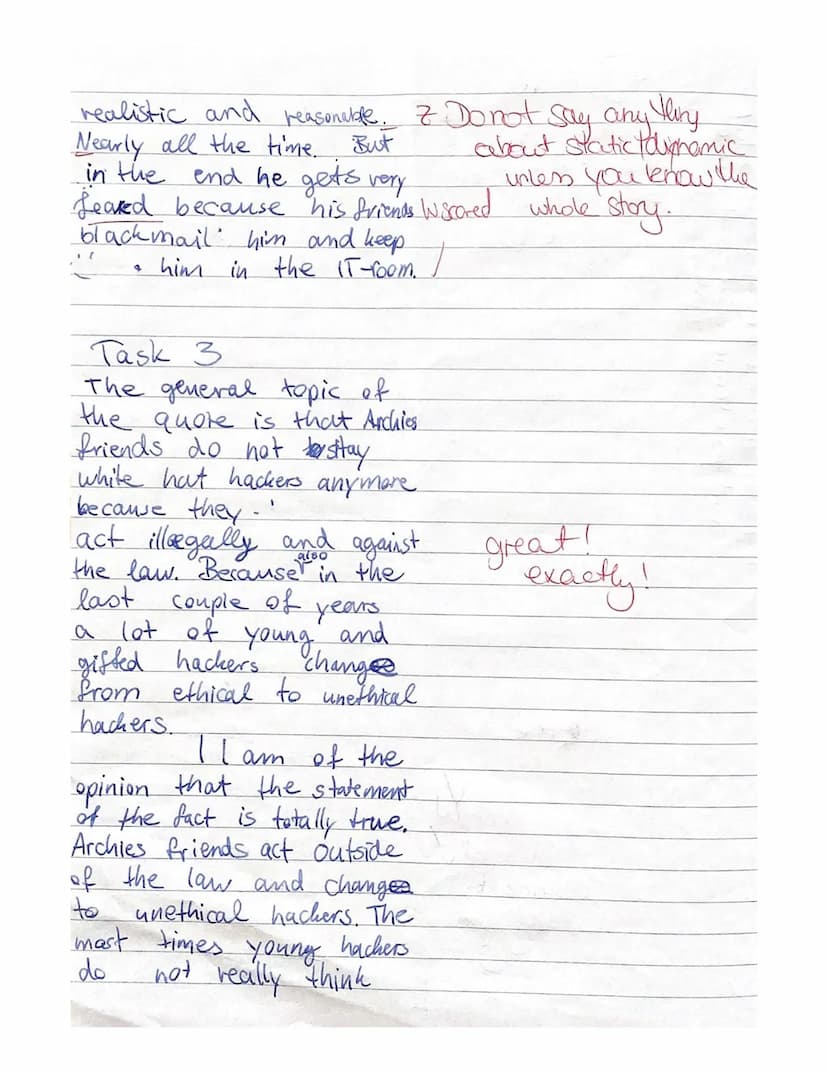 realistic and reasonable. Z Do not say anything
Nearly all the time. But about static/dynamic
in the end he gets very unless you know the
feared because his friends W scared whole story.
blackmail him and keep
him in the IT-room.
Task 3
The general topic of
the quote is that Archies
friends do not stay
white hat hackers anymore
because they
act illegally and against great!
the law. Because also in the exactly!
last couple of years
a lot of young and
gifted hackers change
from ethical to unethical
hackers.
I am of the
opinion that the statement
of the fact is totally true.
Archies friends act outside
of the law and change
to unethical hackers. The
most times young hackers
do not really think